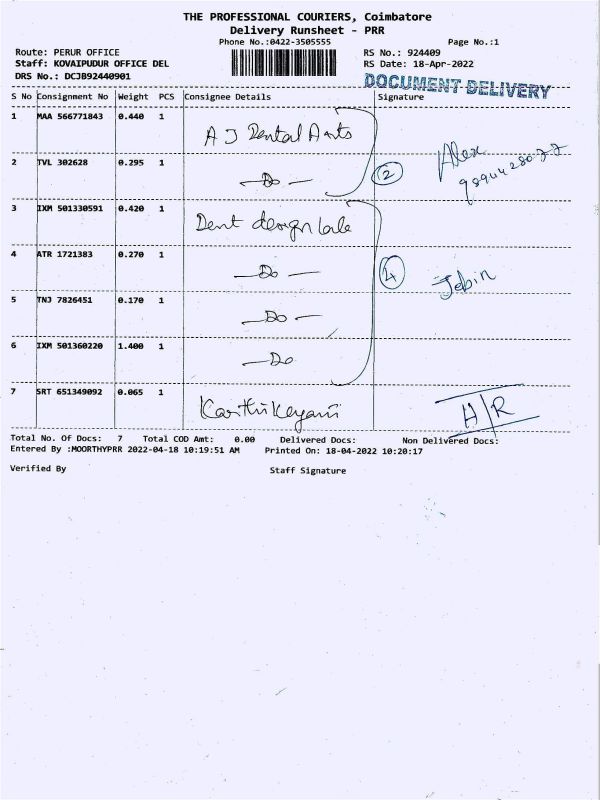 THE PROFESSIONAL COURIERS, Coimbatore
Delivery Runsheet - PRR
Phone No.:0422-3505555 Page No.:1
Route: PERUR OFFICE RS No.: 924409
Staff: KOVAIPUDUR OFFICE DEL RS Date: 18-Apr-2022
DRS No.: DCJB92440901 DOCUMENT DELIVERY
S No Consignment No Weight PCS Consignee Details Signature
1 MAA 566771843 0.440 1 A J Dental Arts
2 TVL 302628 0.295 1 — Do — 2 Alex
3 IXM 501330591 0.420 1 Dent design lab
4 ATR 1721383 0.270 1 — Do — 4 Jebin
5 TNJ 7826451 0.170 1 — Do —
6 IXM 501360220 1.400 1 — Do
7 SRT 651349092 0.065 1 Karthikeyani H/R
Total No. Of Docs: 7 Total COD Amt: 0.00 Delivered Docs: Non Delivered Docs:
Entered By :MOORTHYPRR 2022-04-18 10:19:51 AM Printed On: 18-04-2022 10:20:17
Verified By Staff Signature